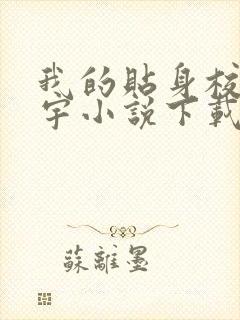 我的貼身校
字小說下載
蘇離墨